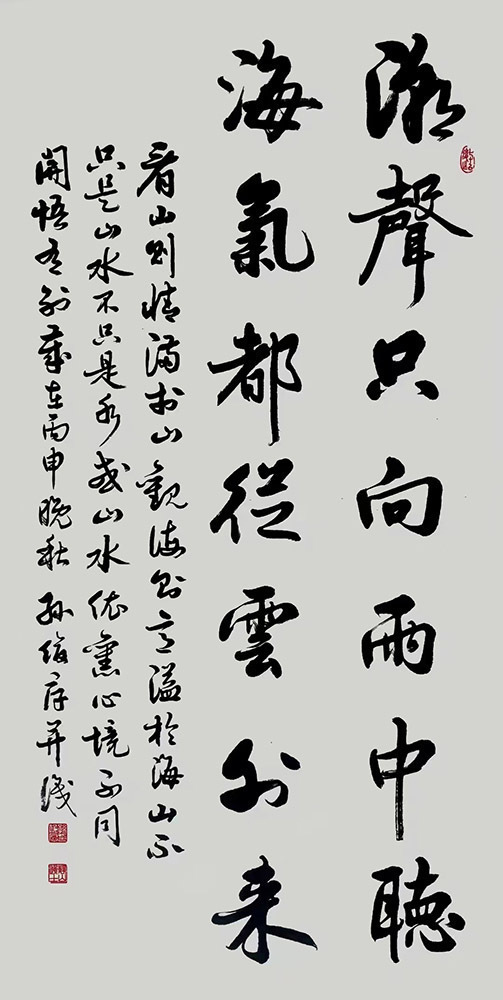 潮聲只向雨中聽
海氣都從雲外來
看山則情滿於山觀海則意溢於海山不
只是山水不只是水或山水依舊心境不同
開悟有別歲在丙申晚秋 孫 并識